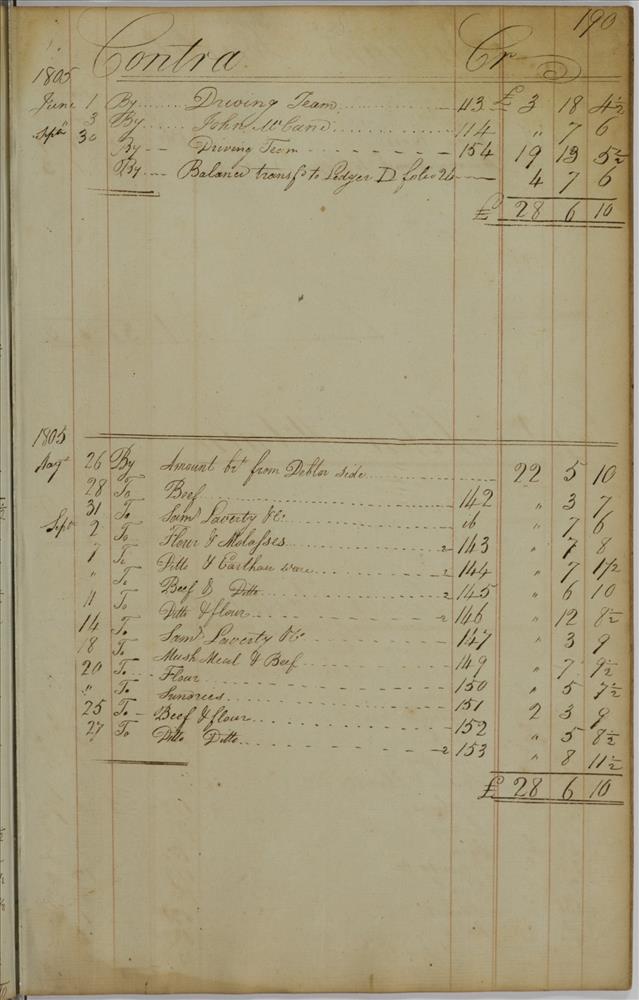 190
Contra Cr
1805
June 1 By Driving Team 113 £ 3 18 4½
3 By John McCand 114 " 7 6
Septr 30 By Driving Team 154 19 13 5½
By Balance transfd to Ledger D folio 26 4 7 6
£ 28 6 10
1805
Augt 26 By Amount bt from Debtor side 22 5 10
28 To Beef 142 " 3 7
31 To Saml Laverty &c ib " 7 6
Septr 2 To Flour & Molasses 2 143 " 7 8
7 To Ditto & Earthen ware 2 144 " 7 1½
" To Beef & Ditto 2 145 " 6 10
11 To Ditto & flour 2 146 " 12 8½
14 To Saml Laverty &c 147 " 3 9
18 To Mush Meal & Beef 149 " 7 9½
20 To Flour 150 " 5 7½
" To Sundrees 151 2 3 9
25 To Beef & flour 152 " 5 8½
27 To Ditto Ditto 2 153 " 8 11½
£ 28 6 10